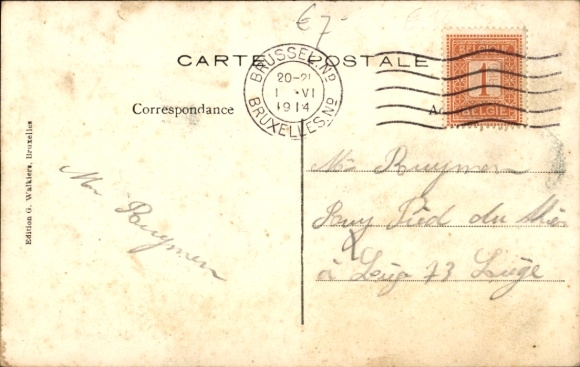 €7-
CARTE POSTALE
BRUSSEL.Nd
20-21
1 VI
1914
BRUXELLES.No
BELGIQUE
1
BELGIE
Correspondance
A
Edition G. Walkiers, Bruxelles
Mr Ruymen
Mr Ruymen
Pied du
à 73 Liège